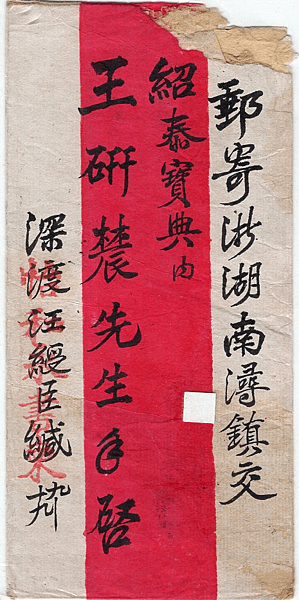 郵寄浙湖南潯鎮交
紹泰寶典內
王研農先生手啓
深渡汪綬臣緘